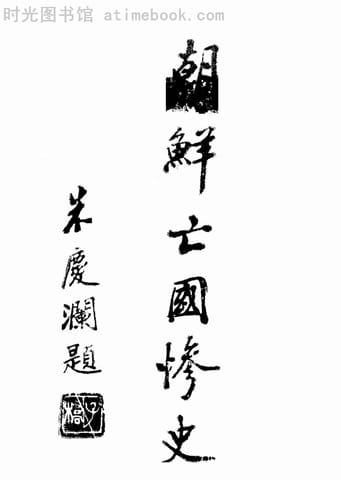 时光图书馆 atimebook.com
朝鮮亡國慘史
朱慶瀾題
子橋